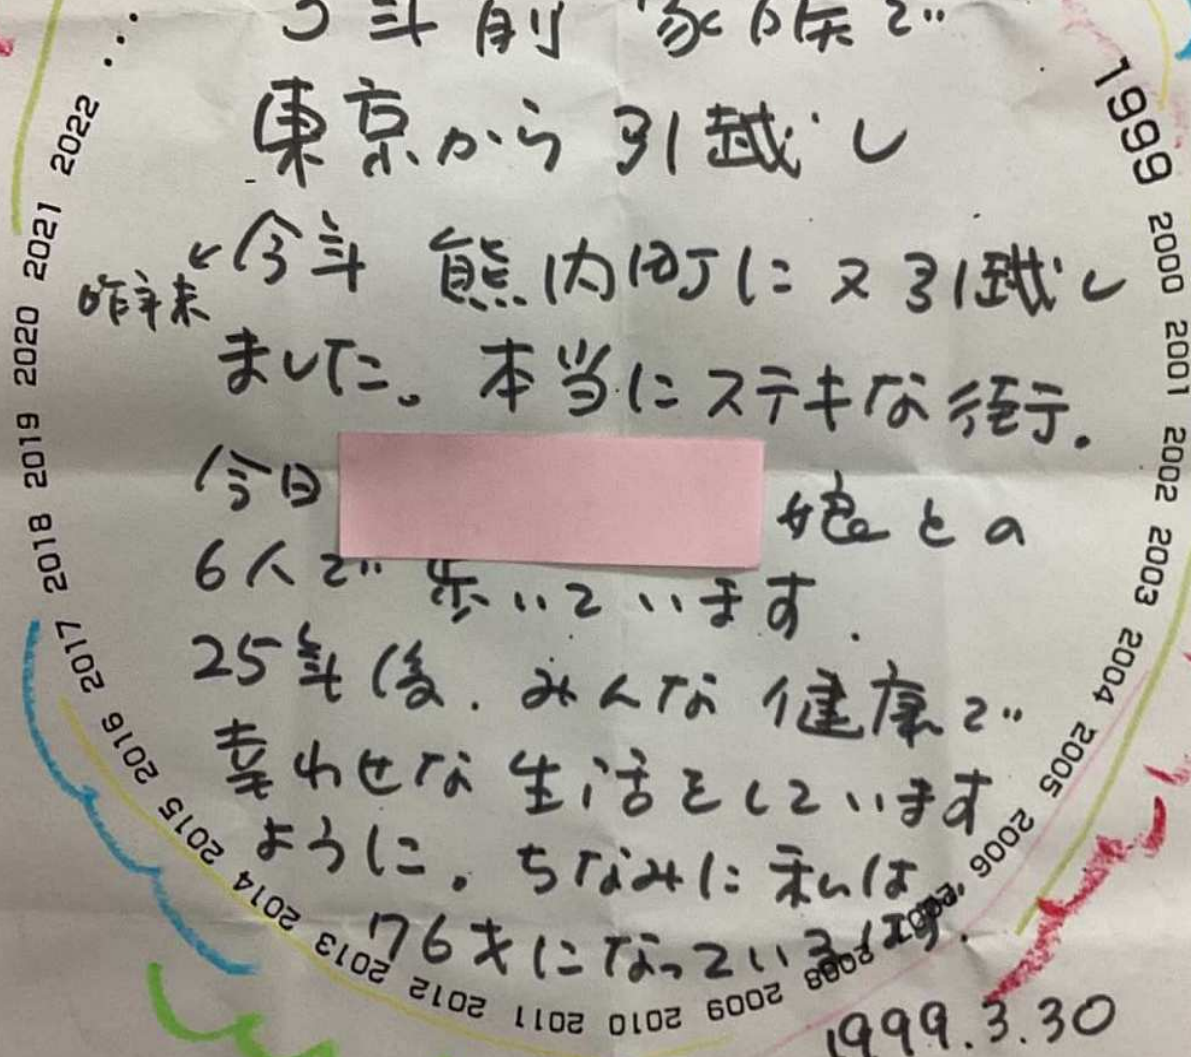 年前 家族で
東京から引越し
←今年 熊内町に又引越し
昨年末
ました。本当にステキな街
今日
娘との
6人で歩いています.
25年後.みんな健康で
幸わせな生活をしています
ように。ちなみに私は
76才になっているはず.
1999.3.30
1999 2000 2001 2002 2003 2004 2005 2006 2007 2008 2009 2010 2011 2012 2013 2014 2015 2016 2017 2018 2019 2020 2021 2022 ...